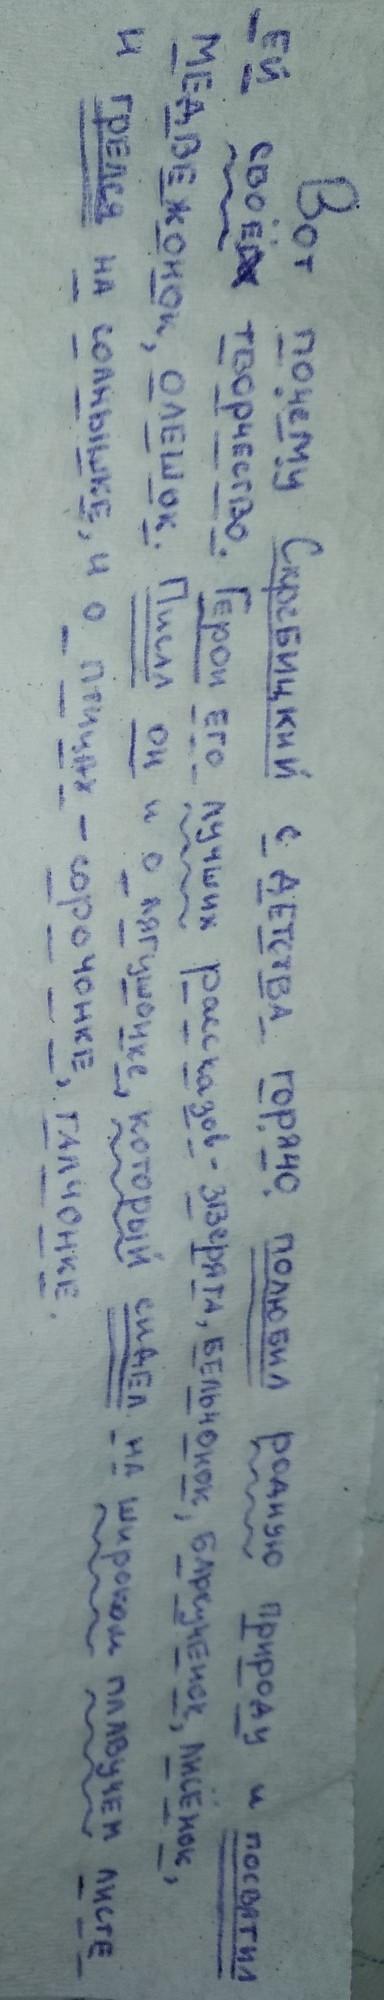 Вот почему Скребицкий с детства горячо полюбил родную природу и посвятил
ей своё творчество. Герои его лучших рассказов - зверята, бельчонок, барсученок, лисёнок,
медвежонок, олешок. Писал он и о лягушонке, который сидел на широком плавучем листе
и грелся на солнышке, и о птицах - сорочонке, галчонке.